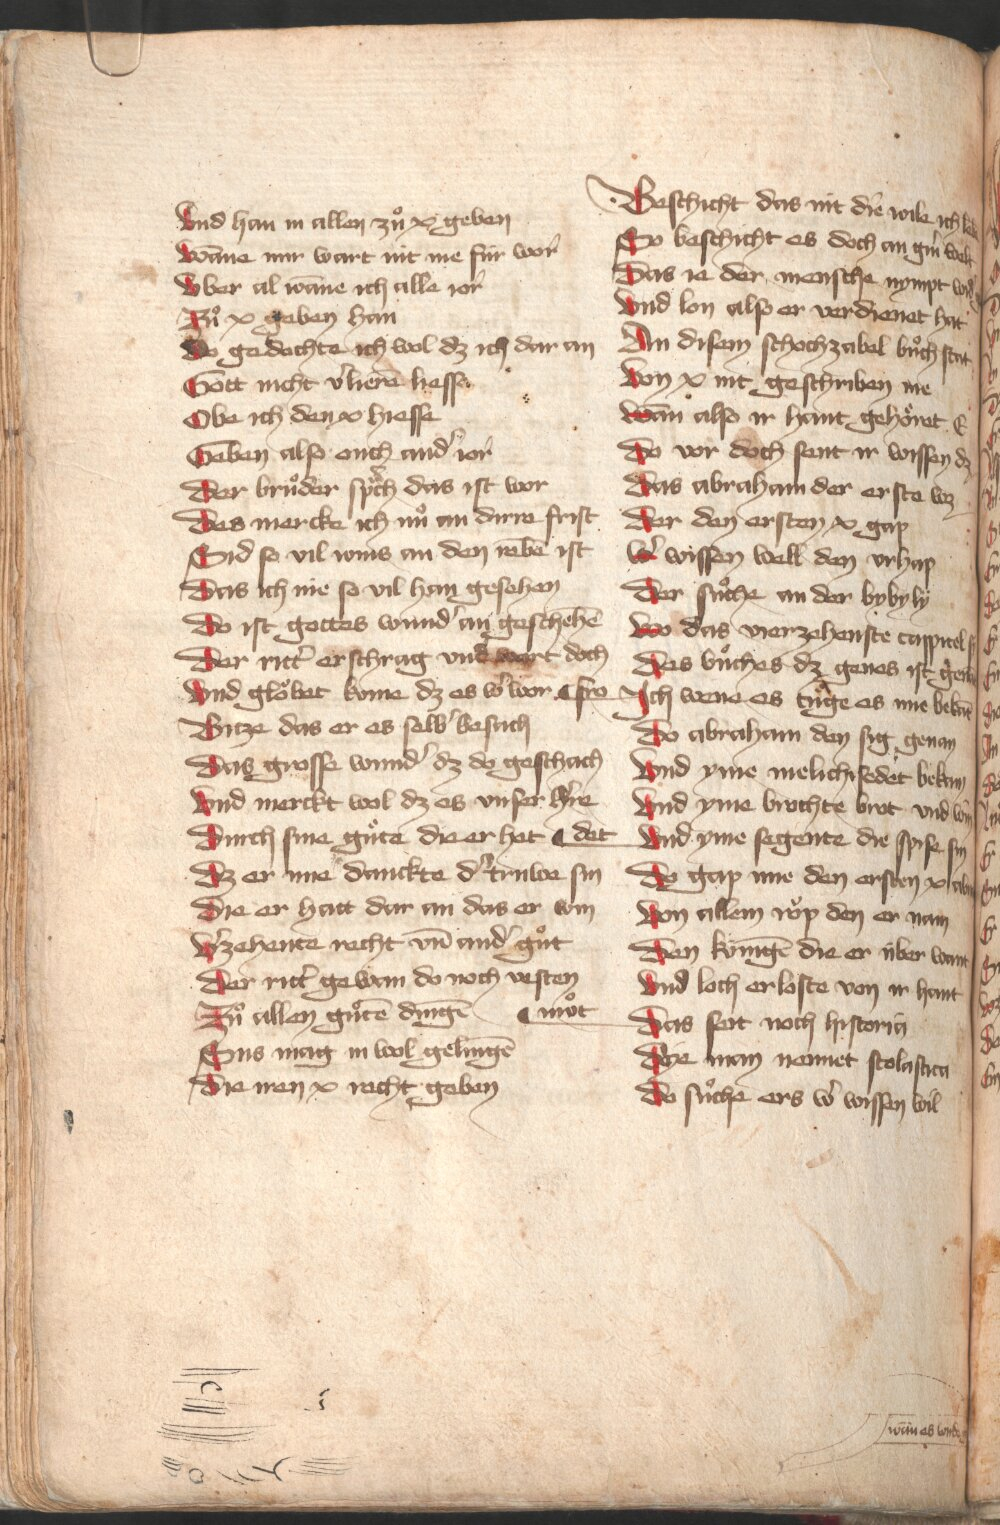 Vnd han in allen zuͦ x geben
wāne mir wart nit me für wor
Vber al wāne ich alle ior
Zuͦ x geben han
Do gedochte ich wol dz ich dar an
Gott nicht v'liere liesse
Obe ich den x hiesse
Geben also ouch and' ior
Der bruͦder sprach das ist wor
Des mercke ich nuͦ an dirre frist
Sid so vil wins an den rebē ist
Das ich nie so vil han gesehen
Do ist gottes wund' an geschehē
Der ritt' erschrag vnd wart doch
Vnd gloͤbet kome dz es w' wor fro
Bitze das er es selb' besach
Das grosse wund' dz do geschach
Vnd merckt wol dz es vnser h're
Durch sine guͤte die er het det
Dz er ime danckte d' truwe sin
Die er hatt dar an das er win
V'zehente recht vn̄ and' guͦt
Der ritt' gewan do noch vesten
Zuͦ allen guͦtē dingē muͦt
Sus mag in wol gelingē
Die iren x recht geben
Beschicht das nit die wile ich lebe
So beschicht es doch an gin welt
Das ie der mensche nympt
Vnd lon also er verdienet hat
An disem schochzabel buͦch stat
Von x nit geschriben me
wān also ir hant gehoͤret E
Do vor doch sent ir wissen dz
Das abraham der erste wz
Der den ersten x gap
W' wissen well den vrhap
Der suͦche an der bybyly
Wo das vierzehenste cappitel
Des buͦches dz genes ist
Ich wene es tuͤge es ime
Do abraham den sig genan
Vnd yme melichisedet bekan
Vnd yme brochte brot vnd win
Vnd yme segente die spise sin
Do gap ime den ersten x
Von allem roͧp den er nam
Den kunigē die er über want
Vnd loch erloste von ir hant
Das seit noch historia
Die man nennet scolastica
Do suͦche ers w' wissen wil
wann es